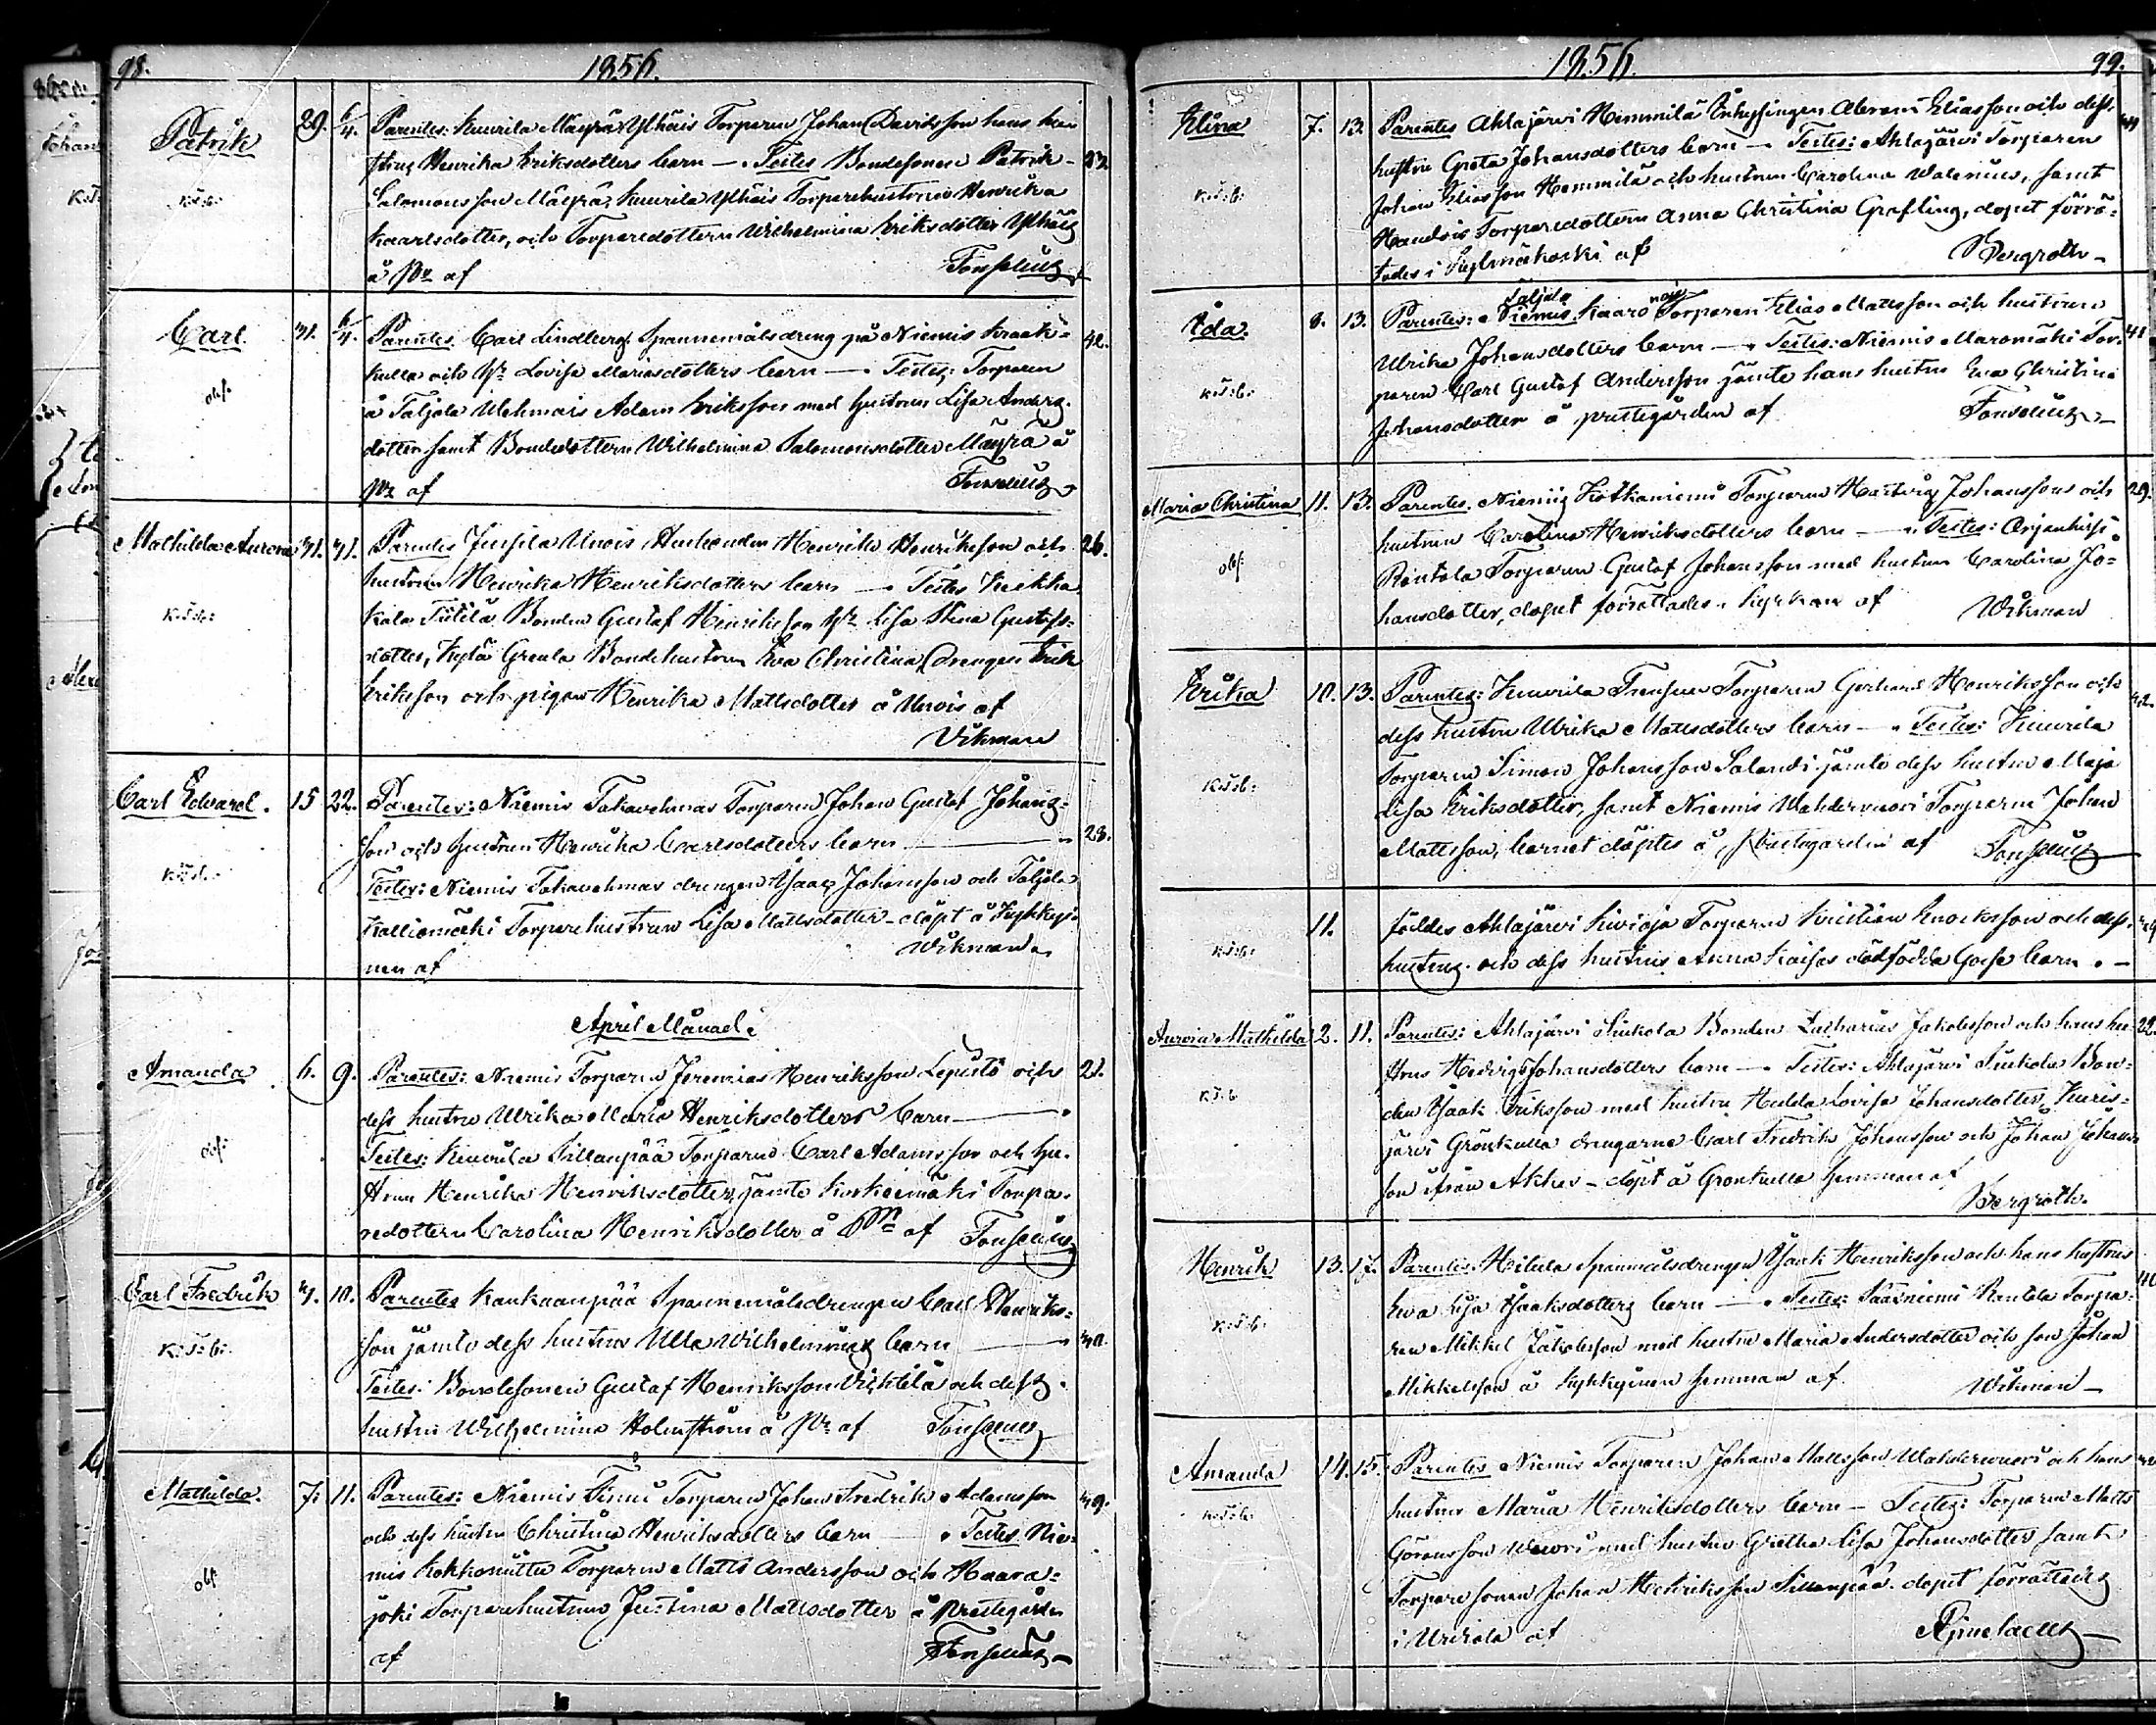 98.
1856.
Patrik 29. 6/4. Parentes: Kuurila Mäyrä Ylhäis Torparen Johan Davidsson hans hu-
strus Henrika Eriksdotters barn —. Testes Bondesonen Patrik
Salomonsson Mäyrä, Kuurila Ylhäis Torparehustrun Henrika
k.s.b. Kaarlsdotter, och Torparedottern Wilhelmina Eriksdotter Ylhäis
å Pr af Fonselius
Carl. 31. 6/4. Parentes. Carl Lindberg Spannemålsdreng på Niemis Kraak- 42.
kulla och hr Lovisa Mariasdotters barn —. Testes: Torparen
obs. å Taljala Uhmais Adam Eriksson med hustrun Lisa Anders-
dotter samt Bondedottern Wilhelmina Salomonsdotter Mäyrä å
Pr af Fonselius
Mathilda Aurora 31. 31. Parentes Jussila Unois Husbonden Henrik Henriksson och 26.
hustrun Henrika Henriksdotters barn —. Testes
k.s.b. Bonden Gustaf Henriksson hr Lisa Stina Gustafs-
dotter, Kylä Greula Bondehustrun Eva Christina, Drengen Erik
Eriksson och pigan Henrika Mattsdotter å Unois af
Wikman
Carl Edvard. 15 22. Parentes: Niemis Takavehmas Torparen Johan Gustaf Johans-
son och hustrun Henrika Carlsdotters barn — 28.
k.s.b. Testes: Niemis Takavehmas drengen Isaac Johansson och Taljala
Kalliomäki Torparehustrun Lisa Mattsdotter - döpt å Kylkyi-
nen af Wikman.
April Månad:
Amanda 6. 9. Parentes: Niemis Torparen Jeremias Henriksson Lepistö och 21.
dess hustru Ulrika Maria Henriksdotters barn —
obs: Testes: Kuurila Sillanpää Torparen Carl Adamsson och hu-
strun Henrika Henriksdotter, jämte Korkeemäki Torpa-
redottern Carolina Henriksdotter å Pr af Fonselius
Carl Fredrik 3. 10. Parentes Kankaanpää Spannemålsdrengen Carl Henriks-
son jämte dess hustrus Ulla Wilhelminas barn — 30.
k.s.b: Testes: Bondesonen Gustaf Henriksson Uichtilä och dess
hustru Wilhelmina Holmström å Pr af Fonselius
Mathilda. 7. 11. Parentes: Niemis Finni Torparen Johan Fredrik Adamsson 39.
och dess hustru Christina Henriksdotters barn — . Testes Nie-
mis Kokkomütta Torparen Matts Andersson och Haara-
obs. joki Torparehustrun Justina Mattsdotter å prestegården
af Fonselius
1856.
99.
Elina 7. 13. Parentes Ahlajärvi Hemmilä Inhysingen Abram Eliasson och dess
hustru Greta Johansdotters barn —. Testes: Ahlajärvi Torparen
k.s.b. Johan Eliasson Hemmilä och hustrun Carolina Walenius, samt
Handois Torparedottern Anna Christina Grefling, dopet förrä-
tades i Sylmäkoski af Bergroth
Ida. 8. 13. Parentes: Taljala Niemis Kaaro Torparen Elias Mattsson och hustrun 41
Ulrika Johansdotters barn —. Testes: Niemis Maromäki Tor-
k.s.b. paren Carl Gustaf Andersson jämte hans hustru Eva Christina
Johansdotter å prestegården af Fonselius
Maria Christina 11. 13. Parentes. Niemis Kotkaniemi Torparen Johansson och 29.
hustrun Carolina Henriksdotters barn —. Testes: Arjanhirsi
obs: Rantala Torparen Gustaf Johansson med hustrun Carolina Jo-
hansdotter, dopet förrättades i kyrkan af Wikman
Erika 10. 13. Parentes: Kuurila Torparen Gerhard Henriksson och
dess hustru Ulrika Mattsdotters barn —. Testes: Kuurila
Torparen Simon Johansson Salandi jämte dess hustru Maja
k.s.b: Lisa Eriksdotter, samt Niemis Wahdervuori Torparen Johan
Mattsson, barnet döptes å Prestegården af Fonselius
11. föddes Ahlajärvi Kivioja Torparen Kristian Enocksson och dess
k.s.b: hustrus och dess hustrus Anna Kaisas dödfödda Gosse barn. —
Aurora Mathilda 2. 11. Parentes: Ahlajärvi Siukola Bonden Zacharias Jakobsson och hans hu- 22.
strus Hedvig Johansdotters barn —. Testes: Ahlajärvi Siukola Bon-
k.s.b den Isaak Eriksson med hustru Hedda Lovisa Johansdotter, Kuris-
järvi Grönkulla drengarne Carl Fredrik Johansson och Johan Johans-
son ifrån Akkas - döpt å Grönkulla hemman af
Bergroth.
Henrik 13. 17. Parentes. Hitula Spannmålsdrengen Isaak Henriksson och hans hustrus 40
Eva Lisa Isaksdotters barn —. Testes: Saarniemi Rantala Torpa-
k.s.b: ren Mikkel Jakobsson med hustru Maria Andersdotter och son Johan
Mikkelsson å Kylkyinen hemman af Wikman
Amanda 14. 15. Parentes Niemis Torparen Johan Mattsson Wahdervuori och hans
hustrus Maria Henriksdotters barn — Testes: Torparen Matts
k.s.b. Göransson Wuori med hustru Gretha Lisa Johansdotter samt
Torparesonen Johan Henriksson Sillanpää. dopet förrättades
i Urdiala af Ajmelaeus